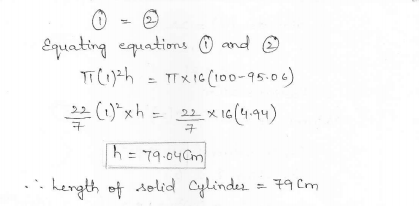 ① = ②
Equating equations ① and ②
π(1)²h = π×16(100-95.06)
22/7 (1)²×h = 22/7 ×16(4.94)
h = 79.04Cm
∴ Length of solid Cylinder = 79Cm